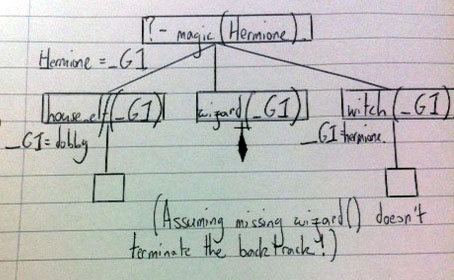 ?- magic(Hermione).
Hermione = _G1
house_elf(_G1) wizard(_G1) witch(_G1)
_G1=dobby _G1=hermione.
(Assuming missing wizard() doesn't
terminate the backtrack!)